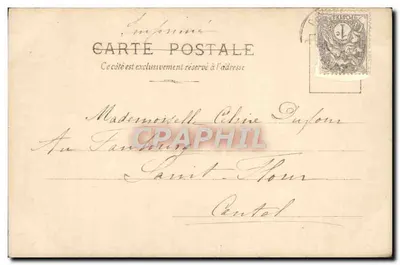 Imprimé
CARTE POSTALE
Ce côté est exclusivement réservé à l'adresse
Mademoiselle Dufour
Au Faubourg
Saint-Flour
Cantal
CPARAMA.COM